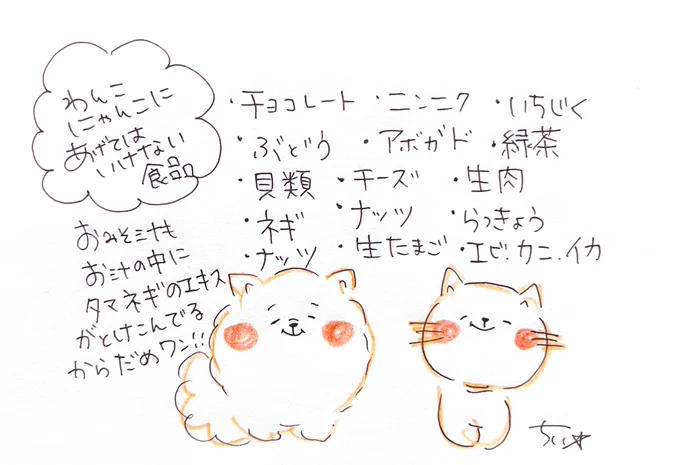 わんこ
にゃんこに
あげては
いけない
食品
・チョコレート ・ニンニク ・いちじく
・ぶどう ・アボガド ・緑茶
・貝類 ・チーズ ・生肉
・ネギ ・ナッツ ・らっきょう
・ナッツ ・生たまご ・エビ.カニ.イカ
おみそ汁も
お汁の中に
タマネギのエキス
がとけこんでる
からだめワン!!
ちぃ☆